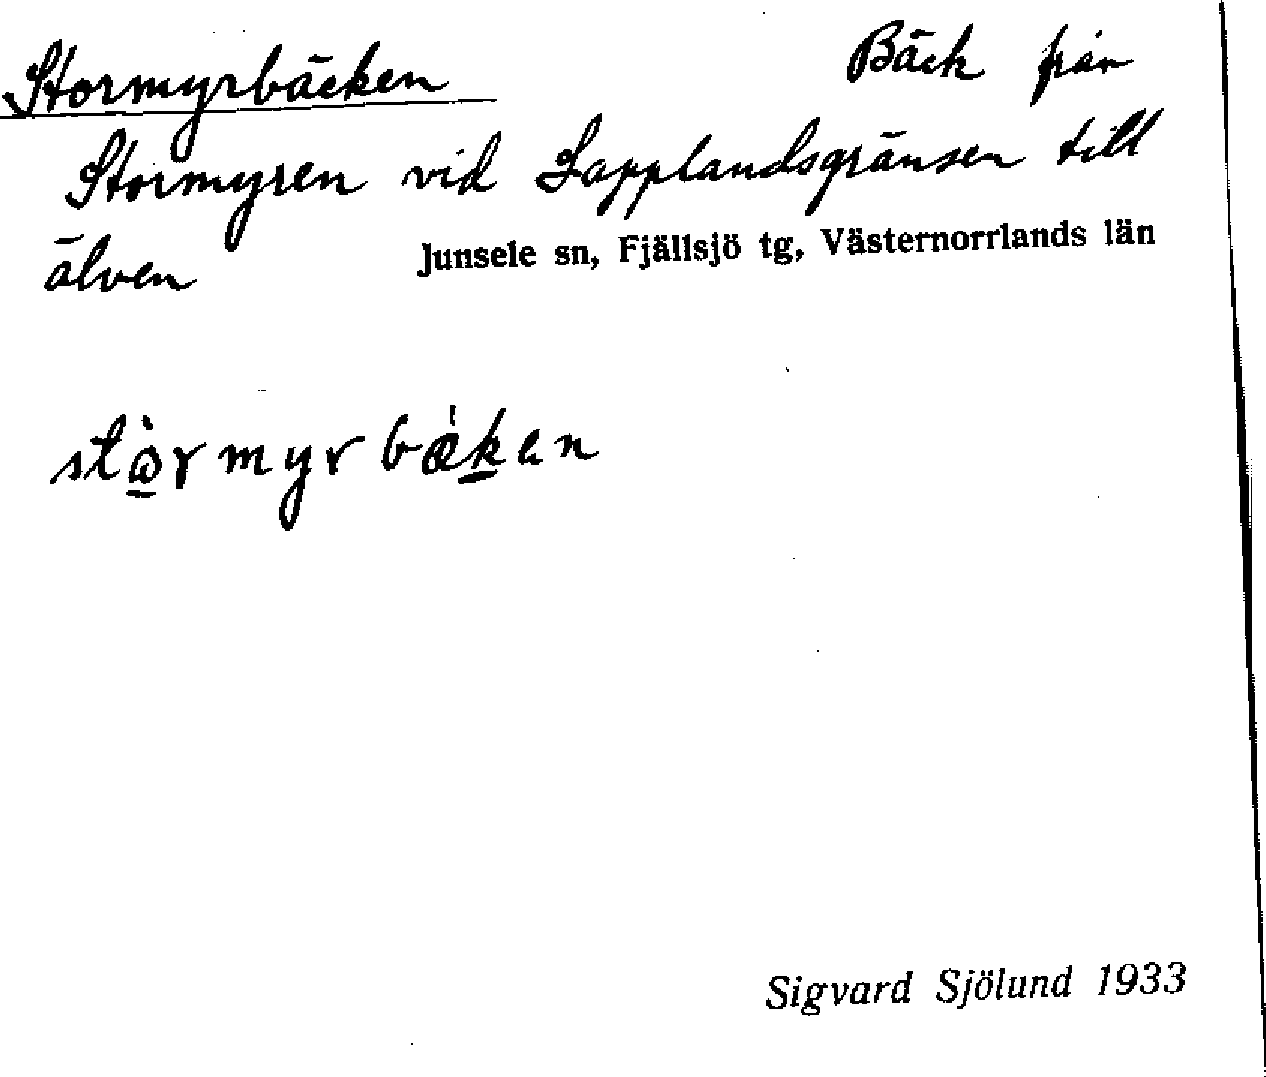 Stormyrbäcken Bäck från
Stormyren vid Lapplandsgränsen till
älven
Junsele sn, Fjällsjö tg, Västernorrlands län
stòrmyrbǽken
Sigvard Sjölund 1933